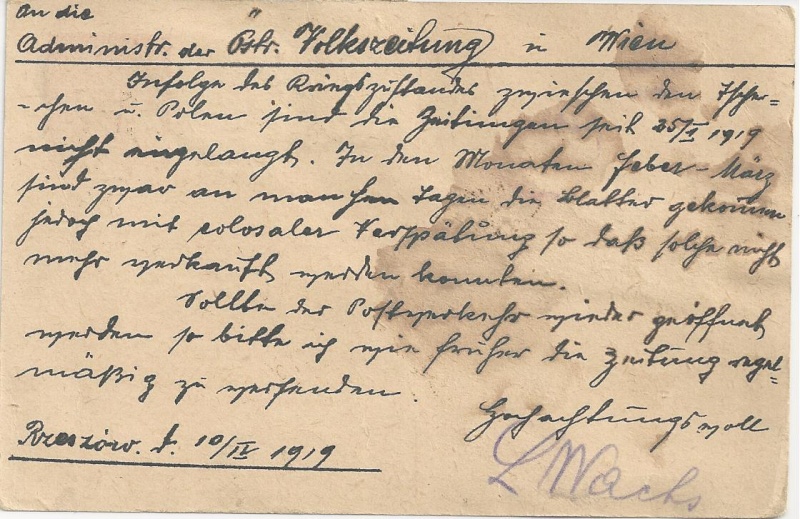 An die
Administr. der Östr. Volkszeitung in Wien
Infolge des Kriegszustandes zwischen den Tsche-
chen u. Polen sind die Zeitungen seit 25/I 1919
nicht eingelangt. In den Monaten Feber-März
sind zwar an manchen Tagen die Blätter gekommen
jedoch mit colosaler Verspätung so daß solche nicht
mehr verkauft werden konnten.
Sollte der Postverkehr wieder geöffnet
werden so bitte ich wie früher die Zeitung regel-
mäßig zu versenden.
Hochachtungsvoll
Rzeszów. d. 10/IV 1919
L Wachs